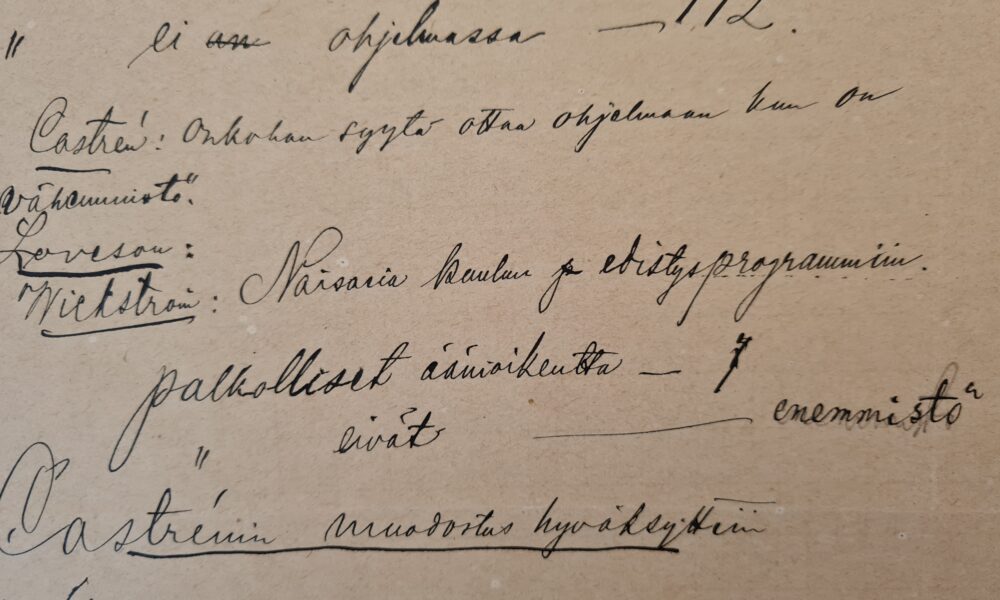 " ei an ohjelmassa — 112.
Castrén: Onkohan syytä ottaa ohjelmaan kun on
vähemmistö.
Loveson:
Wickström: Naisasia kuuluu edistysprogrammiin.
palkolliset äänioikeutta — 7
" eivät — enemmistö
Castrénin muodostus hyväksyttiin